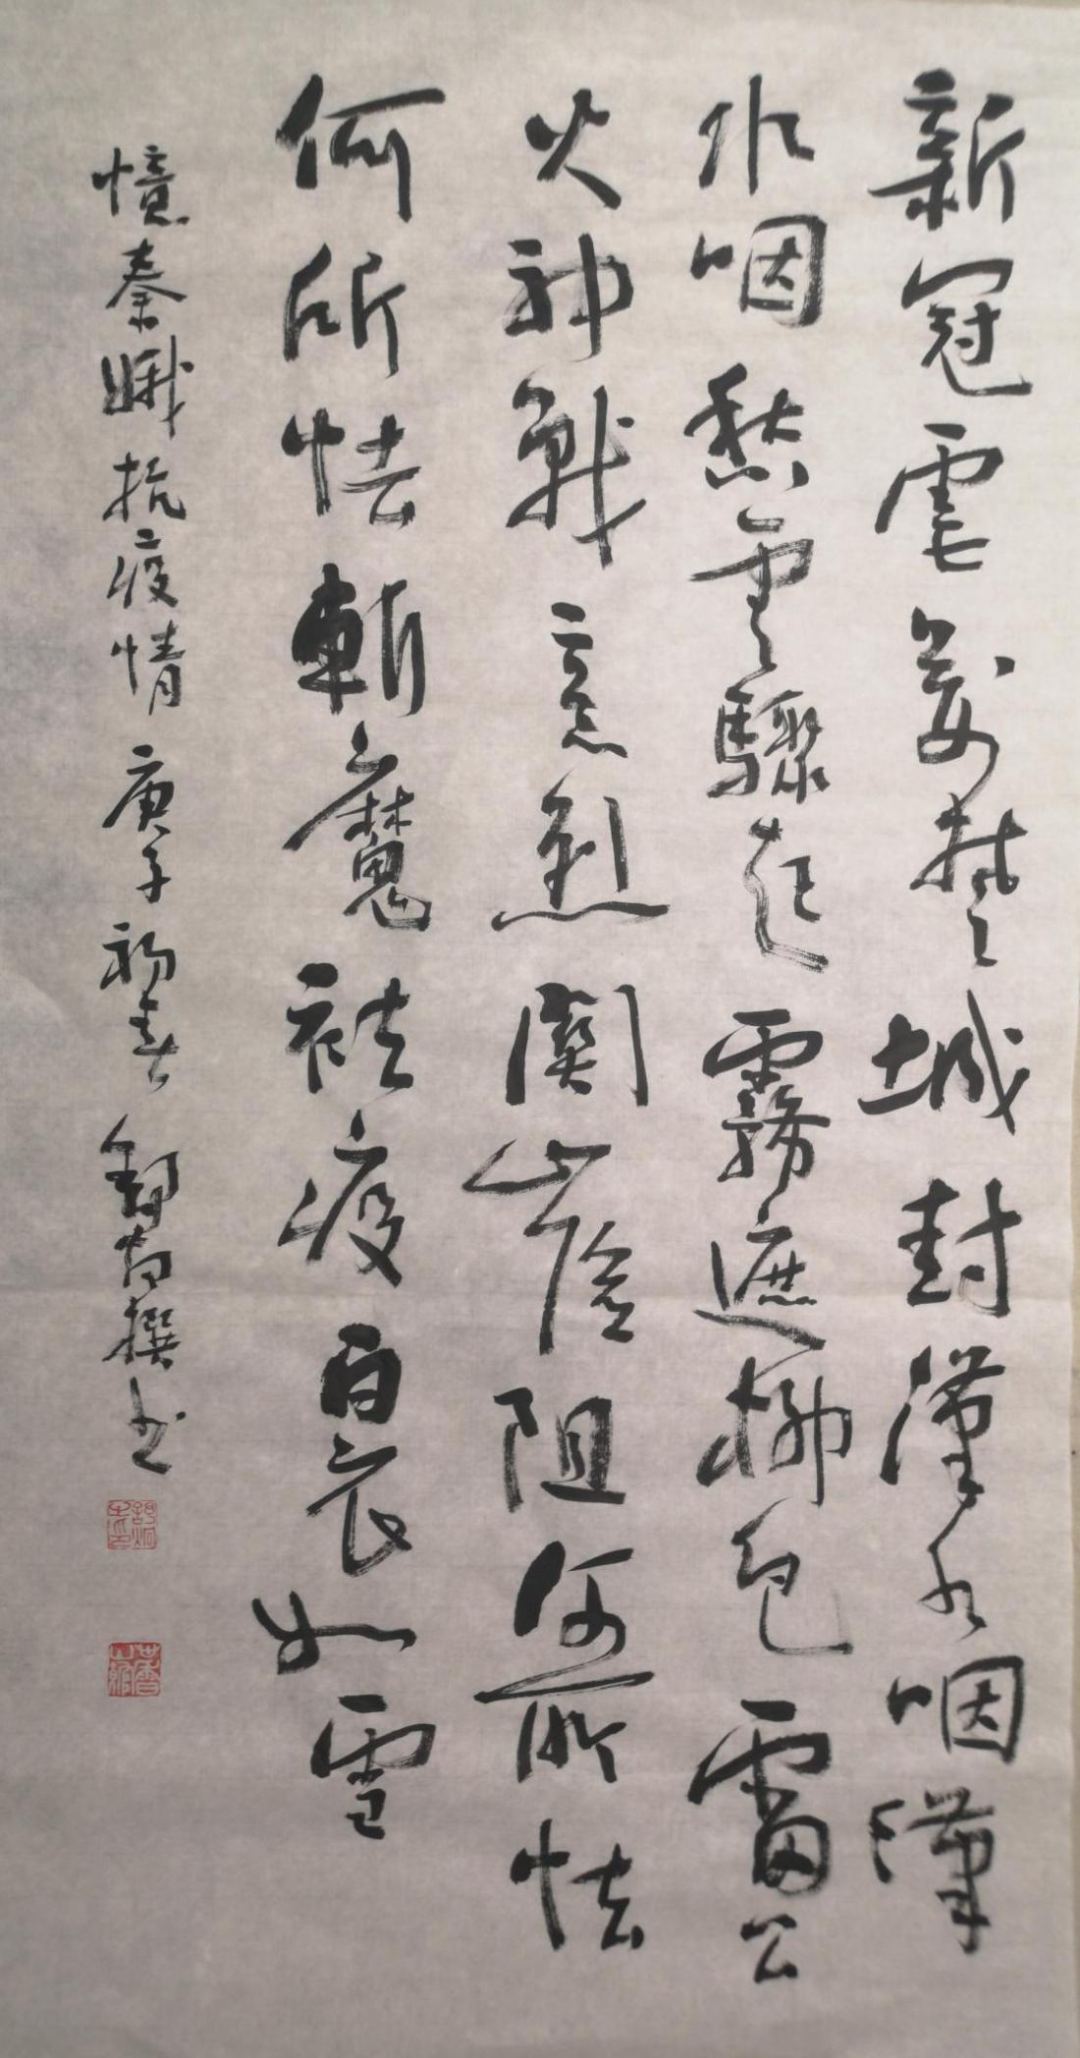 新冠虐萬楚城封漢水咽漢
水咽愁雲驟起霧遮柳色雷公
火神戰意烈關山險阻何所怯
何所怯斬魔祛疫白衣如雪
憶秦娥抗疫情庚子初春鄒撰书